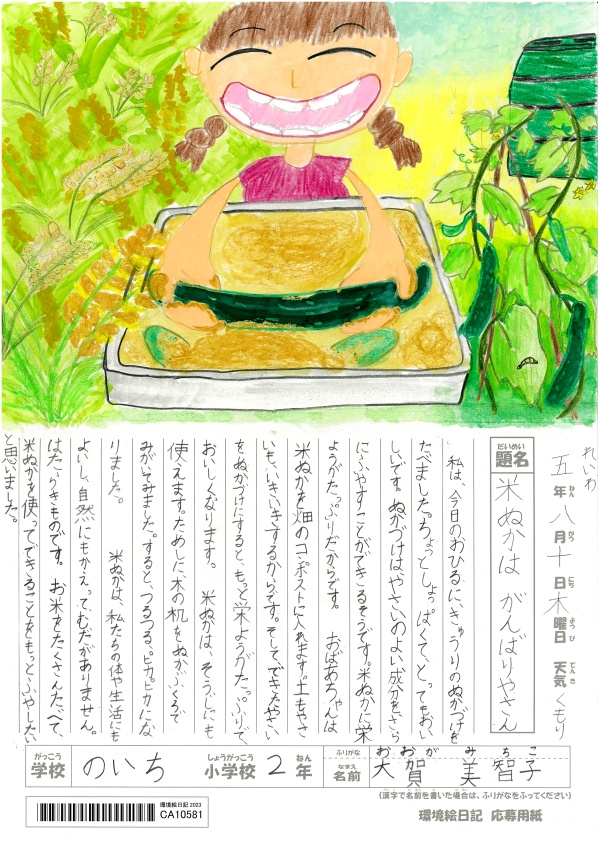 れいわ
五年八月十日木曜日 天気くもり
ねん がつ にち ようび てんき
だいめい
題名 米ぬかは がんばりやさん
私は、今日のおひるにきゅうりのぬかづけを
たべました。ちょっとしょっぱくて、とってもおい
しいです。ぬかづけはやさいのよい成分をさら
にふやすことができるそうです。米ぬかに栄
ようがたっぷりだからです。 おばあちゃんは、
米ぬかを畑のコンポストに入れます。土もやさ
いも、いきいきするからです。そして、できたやさい
をぬかづけにすると、もっと栄ようがたっぷりで、
おいしくなります。 米ぬかは、そうじにも
使えます。ためしに、木の机をぬかぶくろで
みがいてみました。すると、つるつる、ピカピカにな
りました。 米ぬかは、私たちの体や生活にも
よいし、自然にもかえって、むだがありません。
はたらきものです。お米をたくさんたべて、
米ぬかを使ってできることをもっとふやしたい
と思いました。
がっこう しょうがっこう ねん
学校 のいち 小学校 2年
ふりがな おおが みちこ
なまえ
名前 大賀 美智子
(漢字で名前を書いた場合は、ふりがなをふってください)
環境絵日記 2023
CA10581
環境絵日記 応募用紙